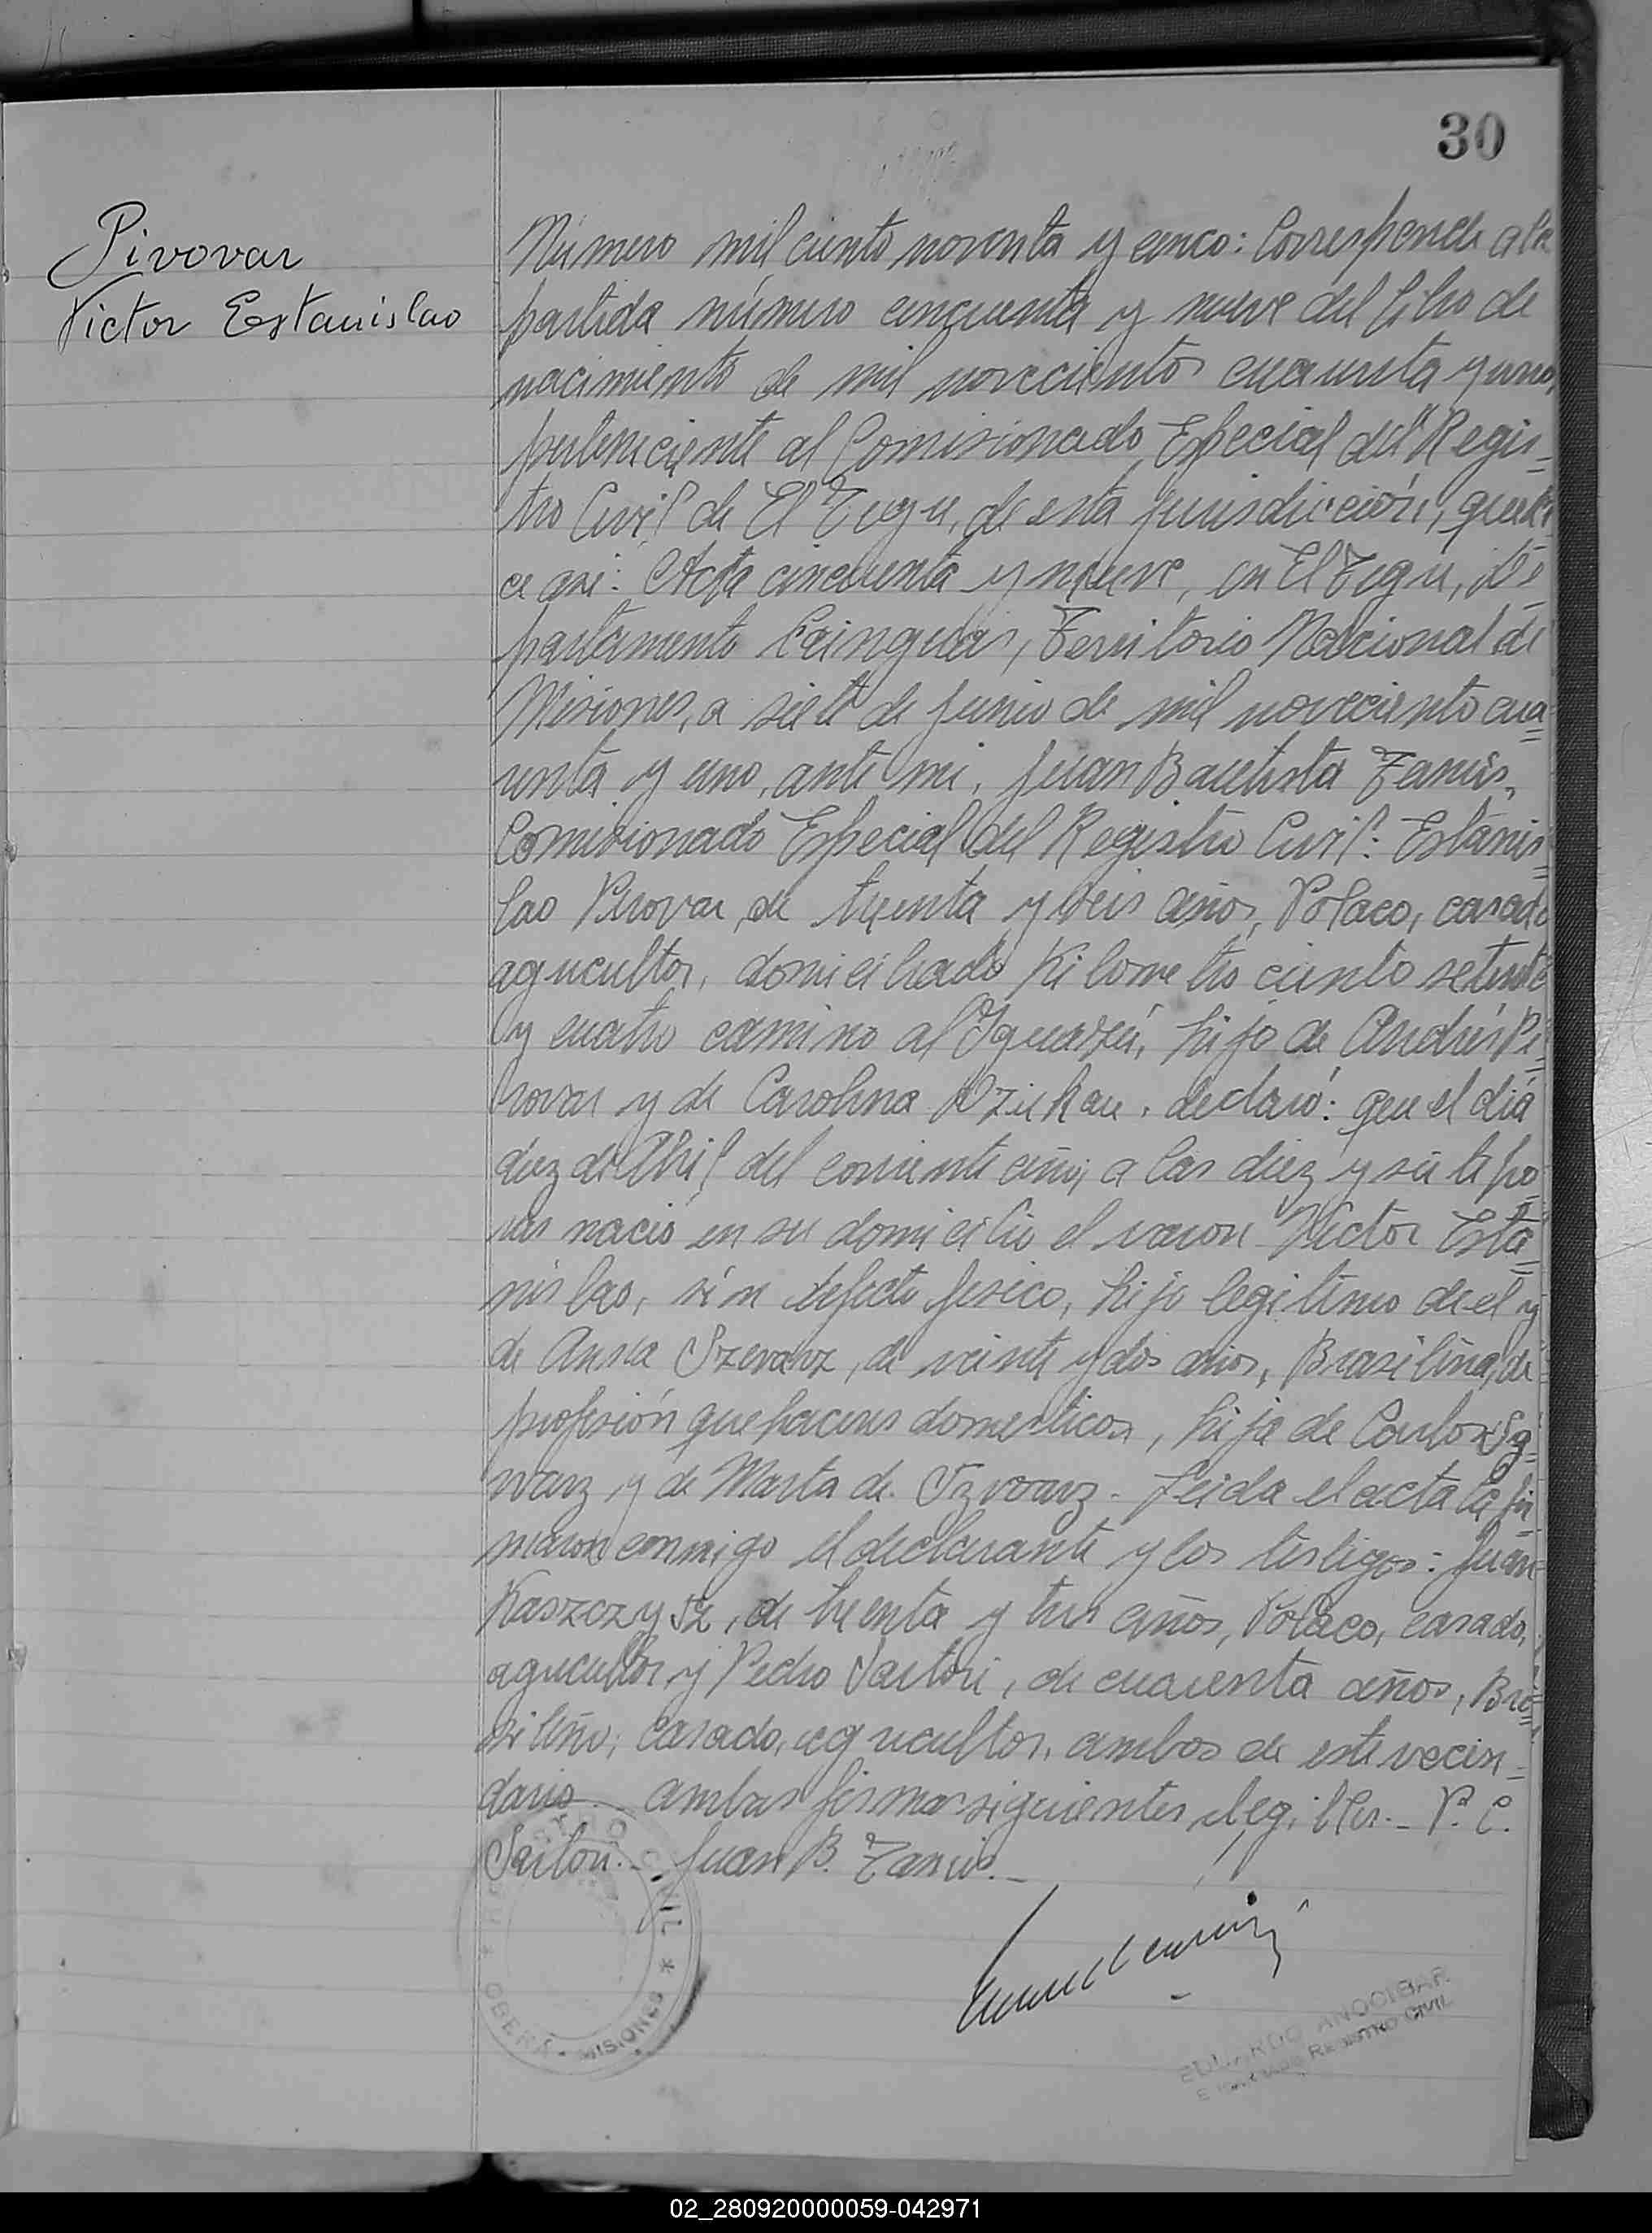 30
Pivovar
Victor Estanislao
Número mil ciento noventa y cinco: Corresponde a la
partida número cincuenta y nueve del libro de
nacimiento de mil novecientos cuarenta y uno,
perteneciente al Comisionado Especial del Regis-
tro Civil de El Tugu, de esta jurisdicción, que di
ce asi: Acta cincuenta y nueve, en El Tugu, De
partamento Cainguas, Territorio Nacional de
Misiones, a siete de junio de mil noveciento cua=
renta y uno, ante mi, Juan Bautista Zanus,
Comisionado Especial del Registro Civil: Estanis=
lao Pivovar, de treinta y seis años, Polaco, casado
agricultor, domiciliado Kilometro ciento setenta
y cuatro camino al Iguazú, hijo de Andrés Pi=
vovar y de Carolina declaró: que el día
diez de Abril del corriente año, a las diez y siete ho
ras nació en su domicilio el varon Victor Esta=
nislao, sin defecto fisico, hijo legitimo de el y
de Anna Szevarz, de veinte y dos años, Brasileña, de
profesión quehaceres domesticos, hija de Carlos Sz=
warz, y de Marta de Szvarz. Leida el acta la fir-
maron conmigo el declarante y los testigos: Juan
Kaszczysz, de treinta y tres años, Polaco, casado,
agricultor, y Pedro Sartori, de cuarenta años, Bra=
sileño, casado, agricultor, ambos de este vecin-
dario. ambas firmas siguientes ilegibles.- P. C.
Sartori.- Juan B. Zanus.-
REGISTRO CIVIL * OBERÁ - MISIONES *
EDUARDO ANOCIBAR
ENCARGADO REGISTRO CIVIL
02_280920000059-042971